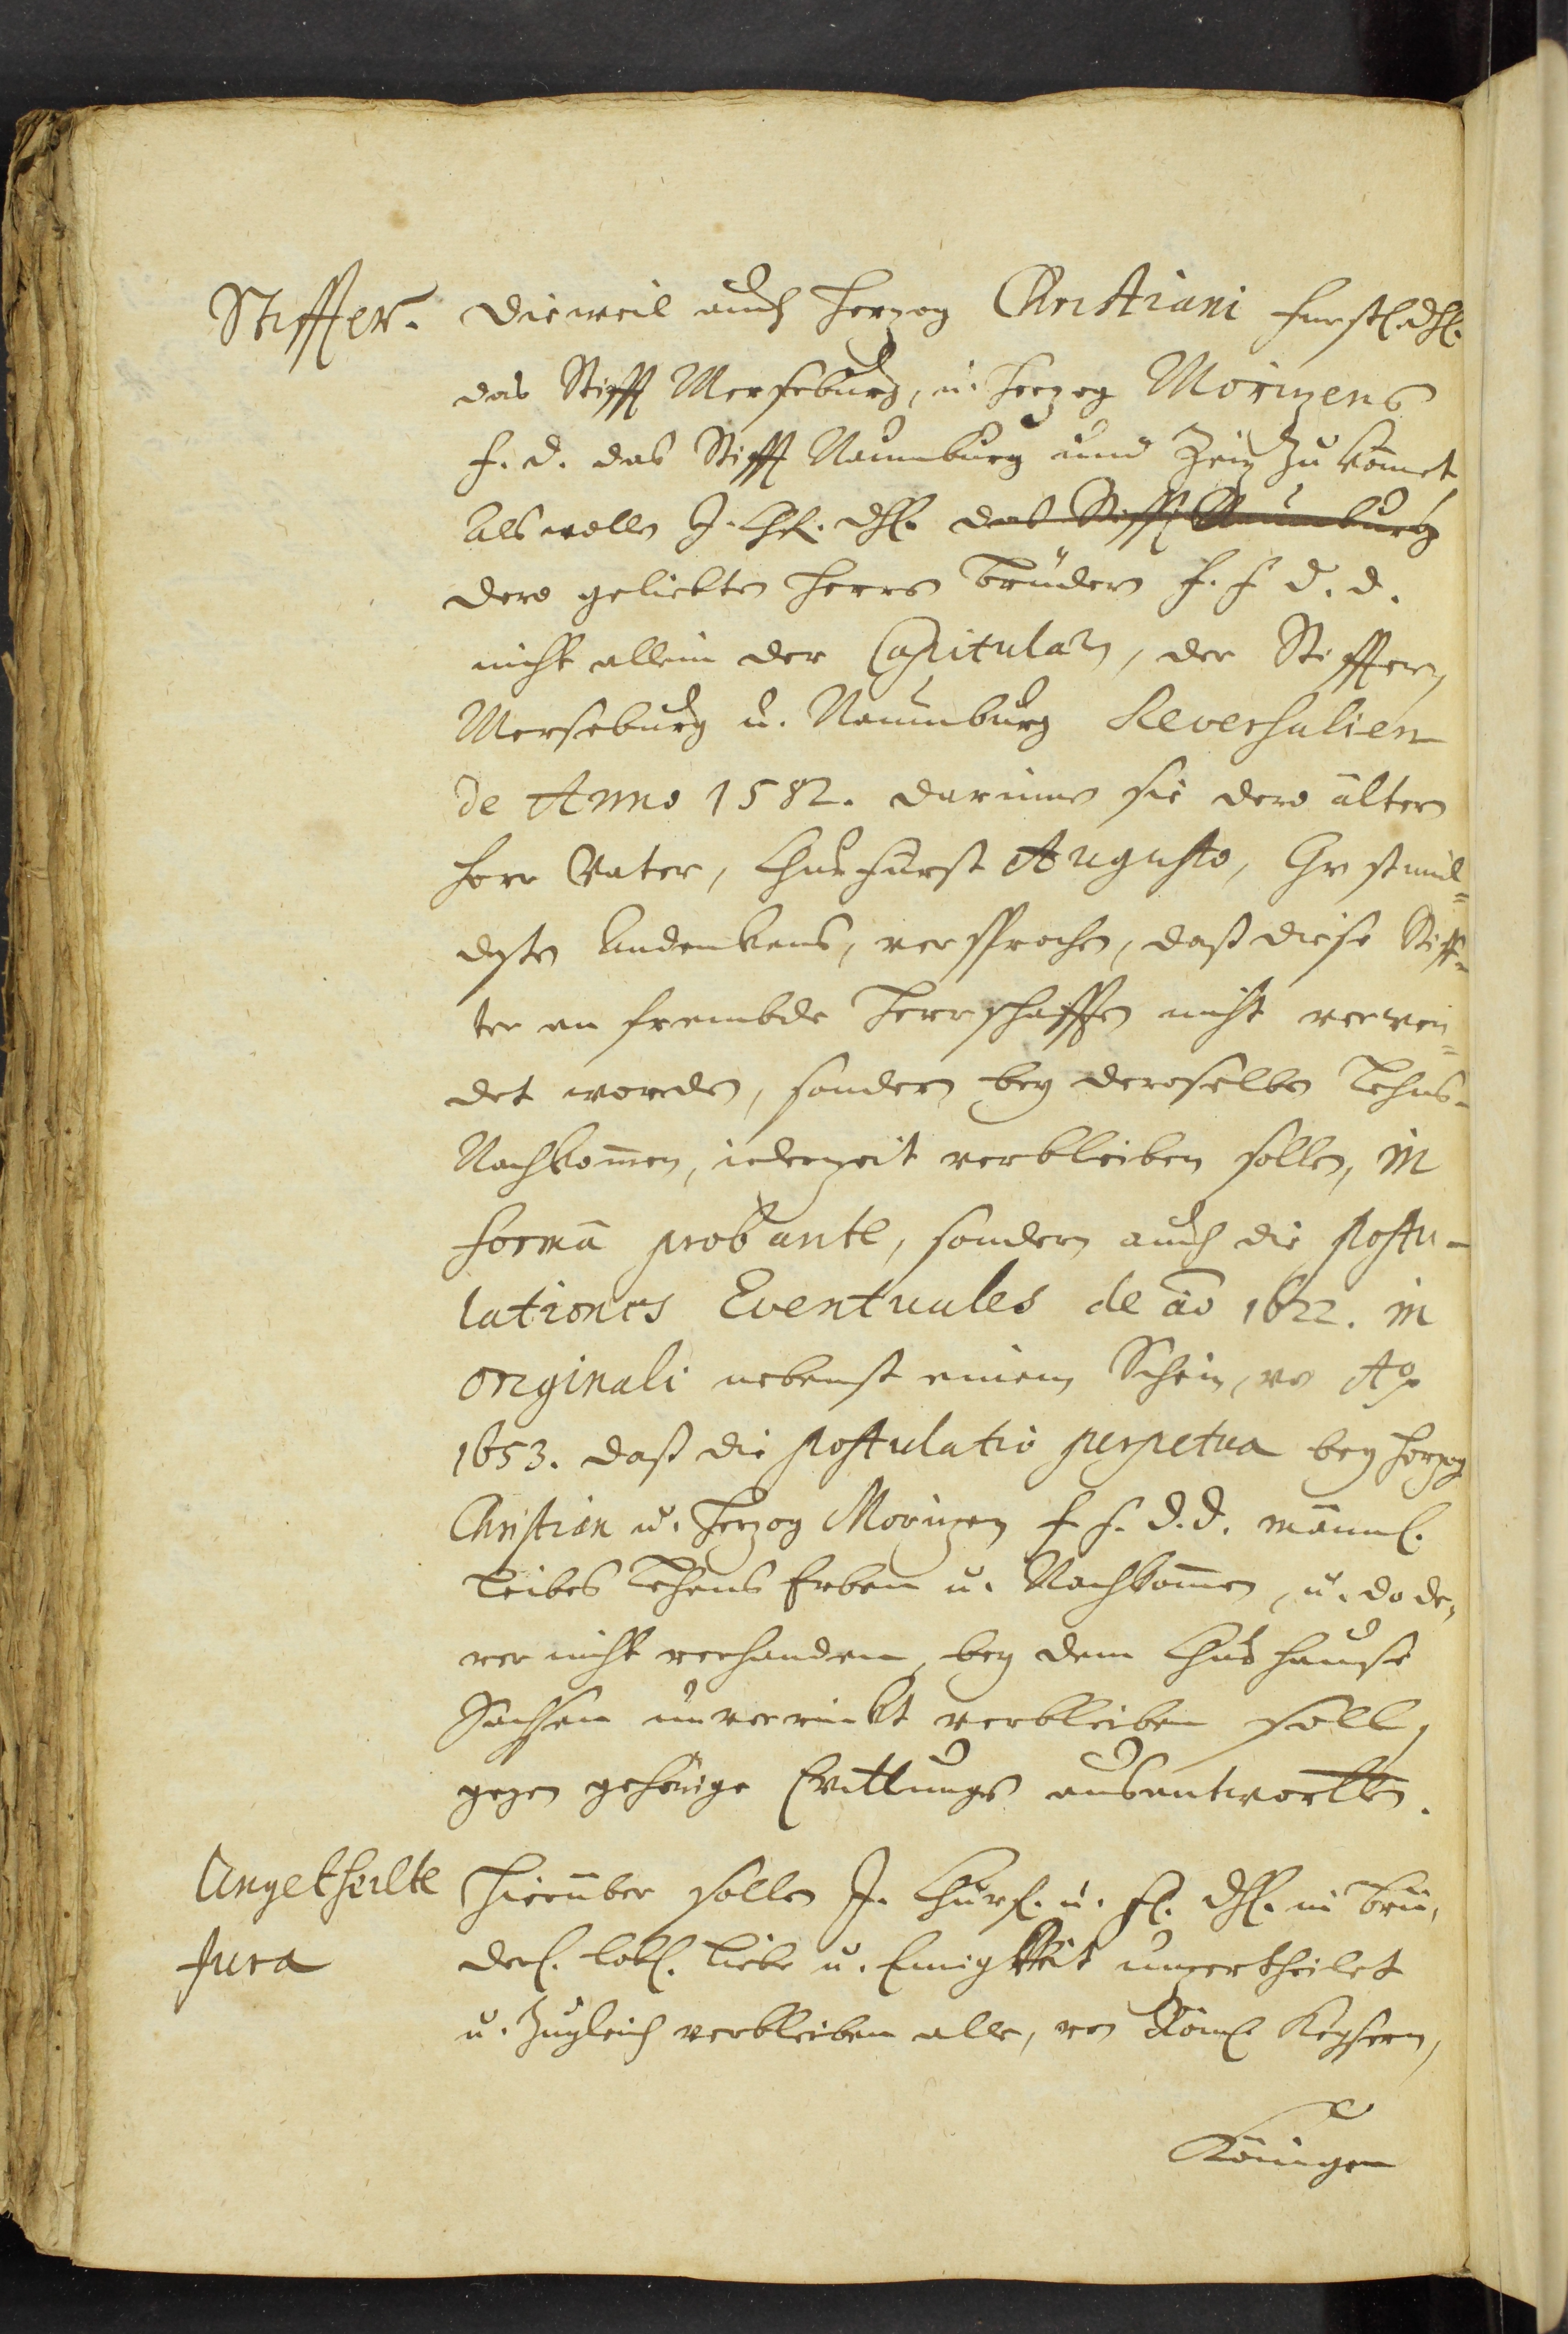 Stiffter. Dieweil auch Herzog Christiani fürstl. dhl.
das Stifft Merseburg, u. Herzog Morizens
f. d. das Stifft Naumburg unnd Zeiz zu kömmt
Als wolln I. Chf. dhl. das Stifft Naumburg
dero geliebten Herrn Brüdern f. f. d. d.
nicht allein der Capitularn, der Stiffter,
Merseburg u. Naumburg Reversalien
de Anno 1582. darinne sie dero ältern
Herr Vater, Churfürst Augusto, Christmil=
desten Andenkens, versprochen, daß diese Stiff=
ter an frembde Herrschafften nicht verwen=
det worden, sondern bey deroselben Lehns-
Nachkommen, iederzeit verbleiben sollen, in
formâ probante, sondern auch die postu-
lationes Eventuales de ão 1622. in
originali nebenst einem Schein, vo Ao
1653. daß die postulatio perpetua bey Herzog
Christian u. Herzog Morizen f. f. d. d. männl.
Leibes Lehens Erben u. Nachkommen, u. da de=
rer nicht verhanden, bey dem Chur Hause
Sachsen unverrückt verbleiben soll,
gegen gehörige Quittungs ausantwortten.
Ungetheilte Hierüber sollen I. Churf. u. fl. dhl. in Brü=
Jura derl. lobl. Liebe u. Einigkeit unzertheilet
u. zugleich verbleiben alle, von Röml. Keysern,
Königen